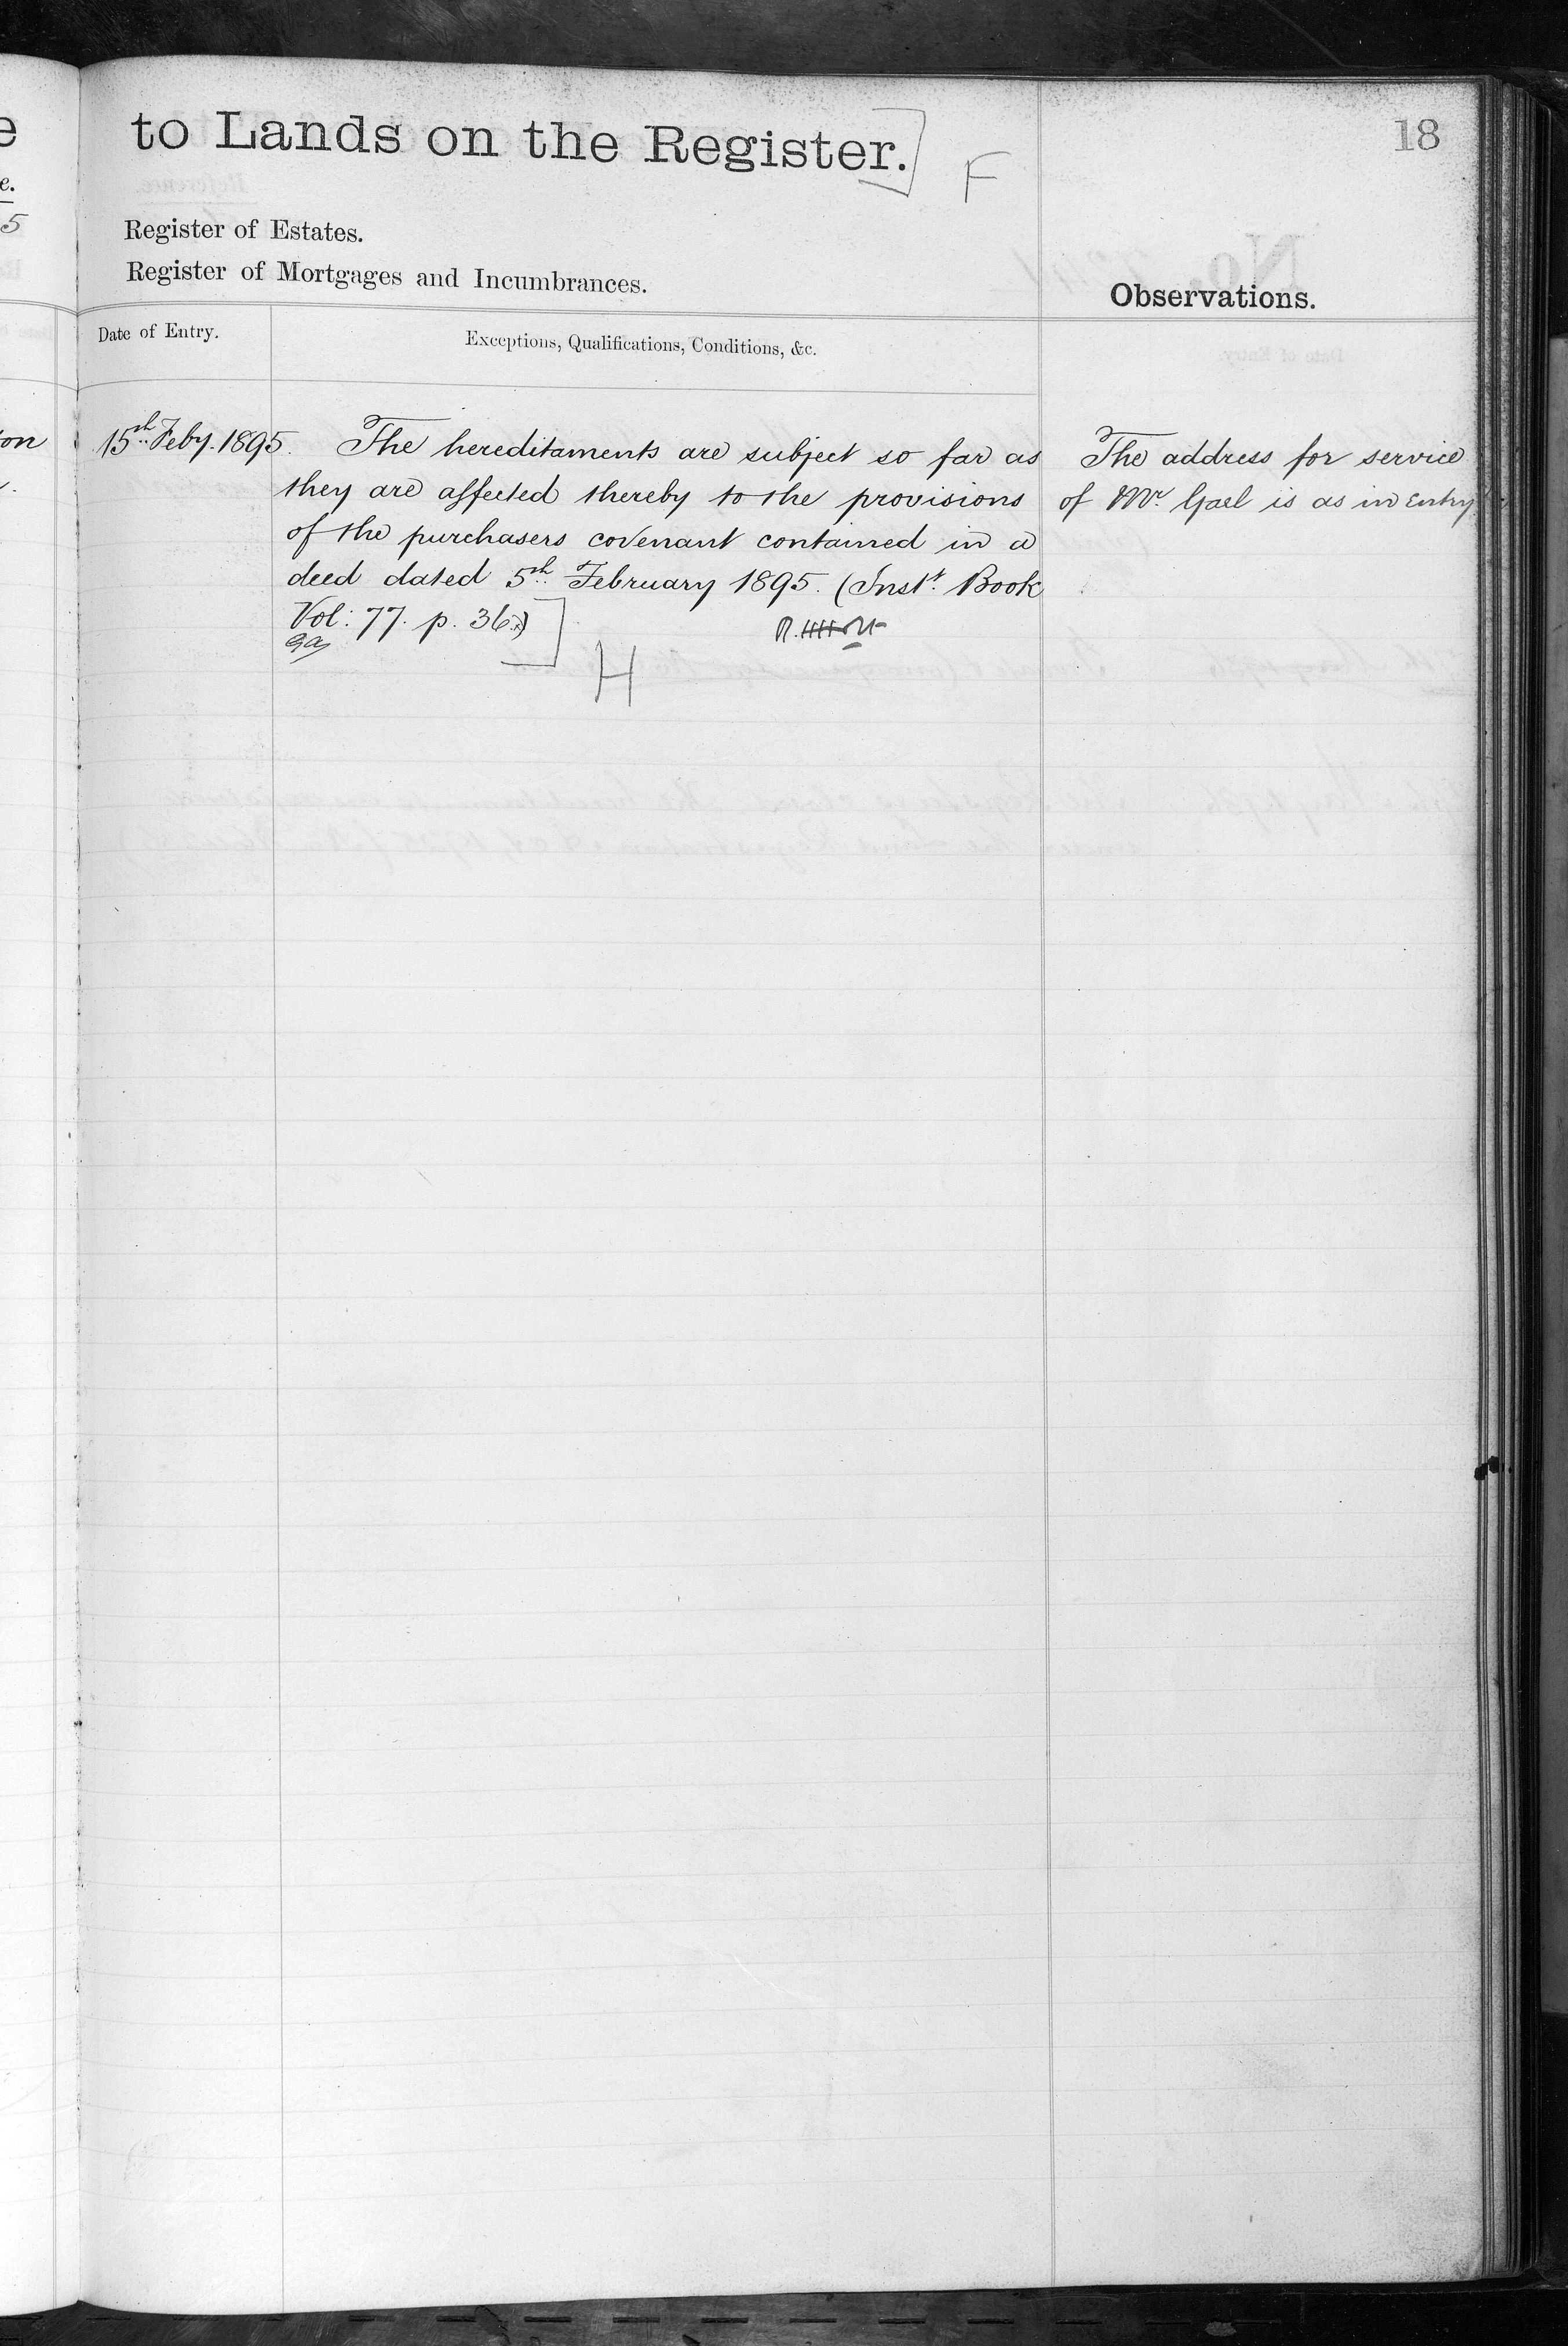 to Lands on the Register.
F
18
Register of Estates.
Register of Mortgages and Incumbrances.
Observations.
Date of Entry.
Exceptions, Qualifications, Conditions, &c.
15th Feby. 1895. The hereditaments are subject so far as
they are affected thereby to the provisions
of the purchasers covenant contained in a
deed dated 5th February 1895. (Inst. Book
Vol: 77. p. 36.)
H
The address for service
of Mr. Gael is as in Entry